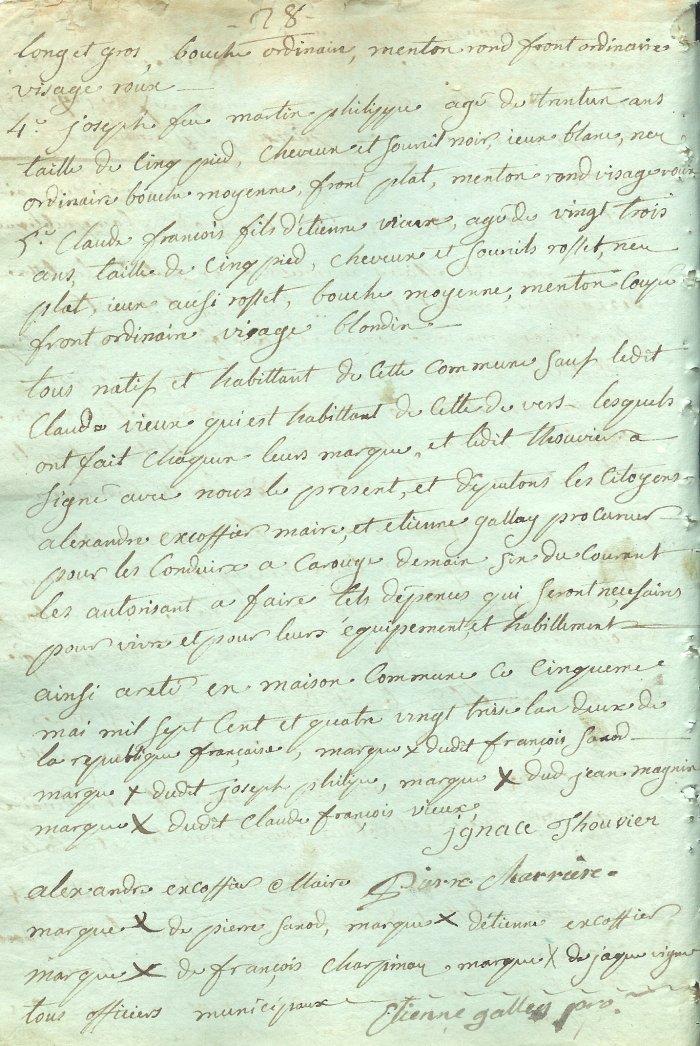 - 78 -
long et gros, bouche ordinaire, menton rond front ordinaire
visage roux —
4.e joseph feu martin philippe agé de trentun ans
taille de cinq pied, cheveux et sourcil noir, ieux blanc, nez
ordinaire bouche moyenne, front plat, menton rond visage roux
5.e Claude françois fils d'étienne vieux, agé de vingt trois
ans, taille de cinq pied, cheveux et sourcils rosset, nez
plat, ieux ausi rosset, bouche moyenne, menton coupé
front ordinaire visage blondin —
tous natif et habittant de cette commune sauf ledit
Claude vieux qui est habittant de celle de vers lesquels
ont fait chaquun leurs marque, et ledit thouvier a
signé avec nous le present, et députons les Citoyens
alexandre excoffier maire, et etienne gallay procureur
pour les conduire a Carouge demain six du Courant
les autorisant a faire tels dépences qui seront neçesaires
pour vivre et pour leurs équipement et habillement —
ainsi areté en maison commune ce cinquieme
mai mil sept cent et quatre vingt treise lan deux de
la republique française, marque x dudit françois sanod —
marque x dudit joseph philipe, marque x dud jean magnin
marque x dudit Claude françois vieux,
jgnace Thouvier
alexandre excoffier Maire Pierre Charrière.
marque x de pierre sanod, marque x détienne excoffier
marque x de françois charpinay marque x de jaque vigne
tous officiers municipaux
Etienne gallay pro.r